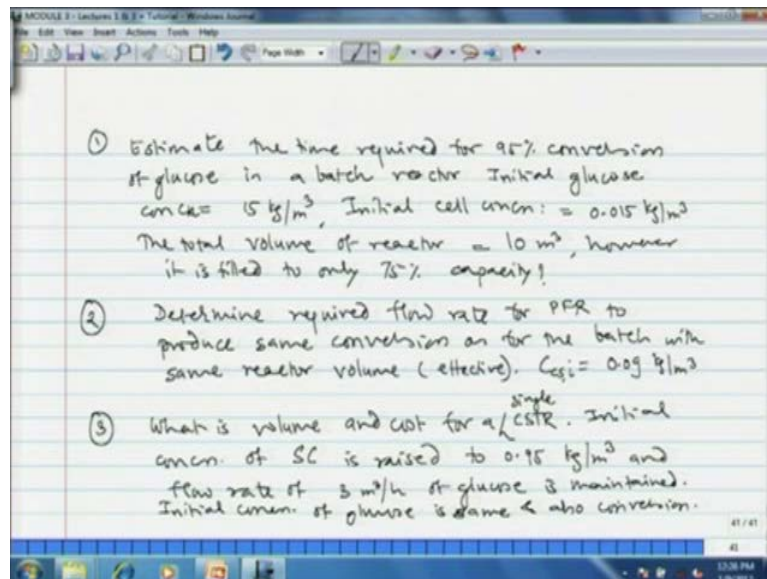 MODULE 3 - Lectures 1 & 3 + Tutorial - Windows Journal
File Edit View Insert Actions Tools Help
Page Width
① Estimate the time required for 95% conversion
of glucose in a batch reactor Initial glucose
concn = 15 kg/m³, Initial cell concn: = 0.015 kg/m³
The total volume of reactor = 10 m³, however
it is filled to only 75% capacity!
② Determine required flow rate for PFR to
produce same conversion as for the batch with
same reactor volume (effective). Ccsi = 0.09 kg/m³
③ What is volume and cost for a single CSTR. Initial
concn. of SC is raised to 0.95 kg/m³ and
flow rate of 3 m³/h of glucose is maintained.
Initial concn. of glucose is same & also conversion.
41 / 41
41
12:26 PM